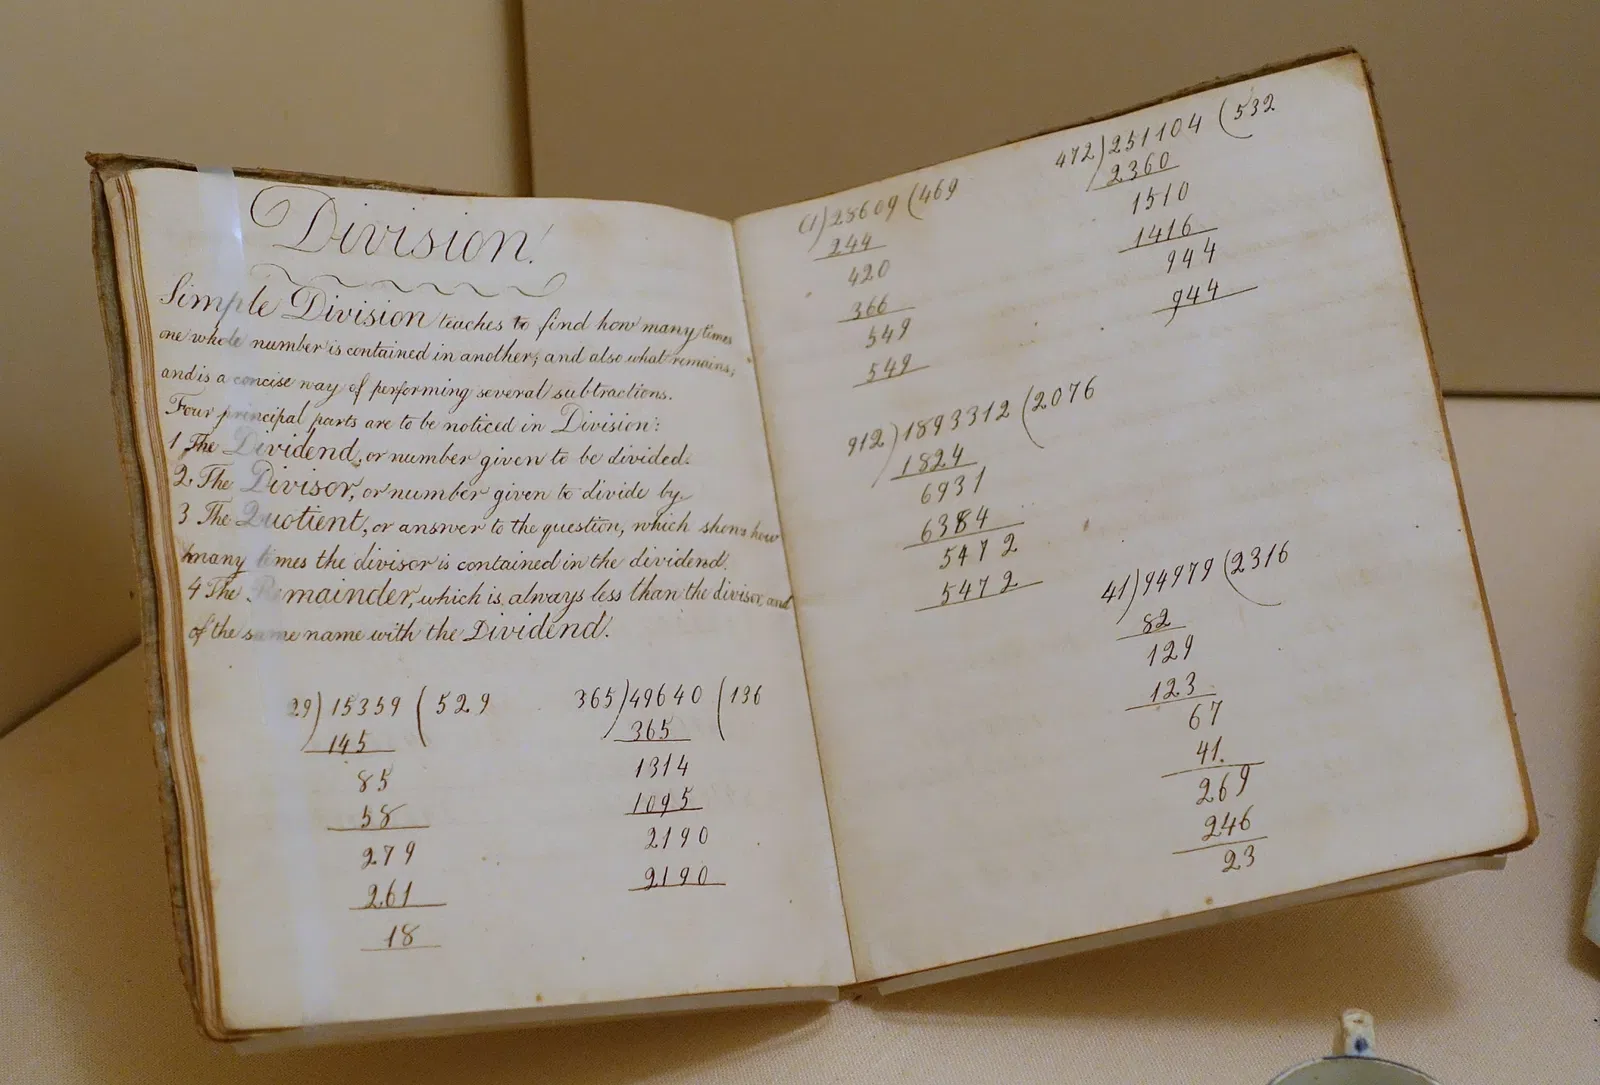 Division.
Simple Division teaches to find how many times
one whole number is contained in another; and also what remains;
and is a concise way of performing several subtractions.
Four principal parts are to be noticed in Division:
1 The Dividend, or number given to be divided.
2. The Divisor, or number given to divide by.
3 The Quotient, or answer to the question, which shows how
many times the divisor is contained in the dividend.
4 The Remainder, which is always less than the divisor, and
of the same name with the Dividend.
29)15359(529
145
85
58
279
261
18
365)49640(136
365
1314
1095
2190
2190
61)28609(469
244
420
366
549
549
472)251104(532
2360
1510
1416
944
944
912)1893312(2076
1824
6931
6384
5472
5472
41)94979(2316
82
129
123
67
41.
269
246
23